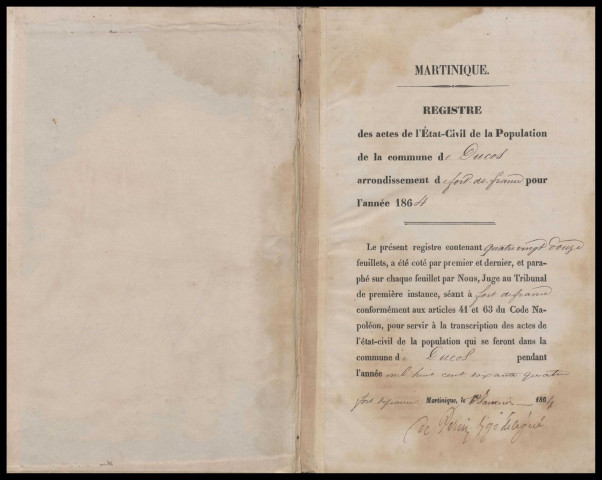 MARTINIQUE.
REGISTRE
des actes de l'État-Civil de la Population
de la commune de Ducos
arrondissement de fort de france pour
l'année 1864
Le présent registre contenant quatre vingt douze
feuillets, a été coté par premier et dernier, et para-
phé sur chaque feuillet par Nous, Juge au Tribunal
de première instance, séant à fort de france
conformément aux articles 41 et 63 du Code Na-
poléon, pour servir à la transcription des actes de
l'état-civil de la population qui se feront dans la
commune de Ducos pendant
l'année mil huit cent soixante quatre
fort de france Martinique, le 1er Janvier 1864